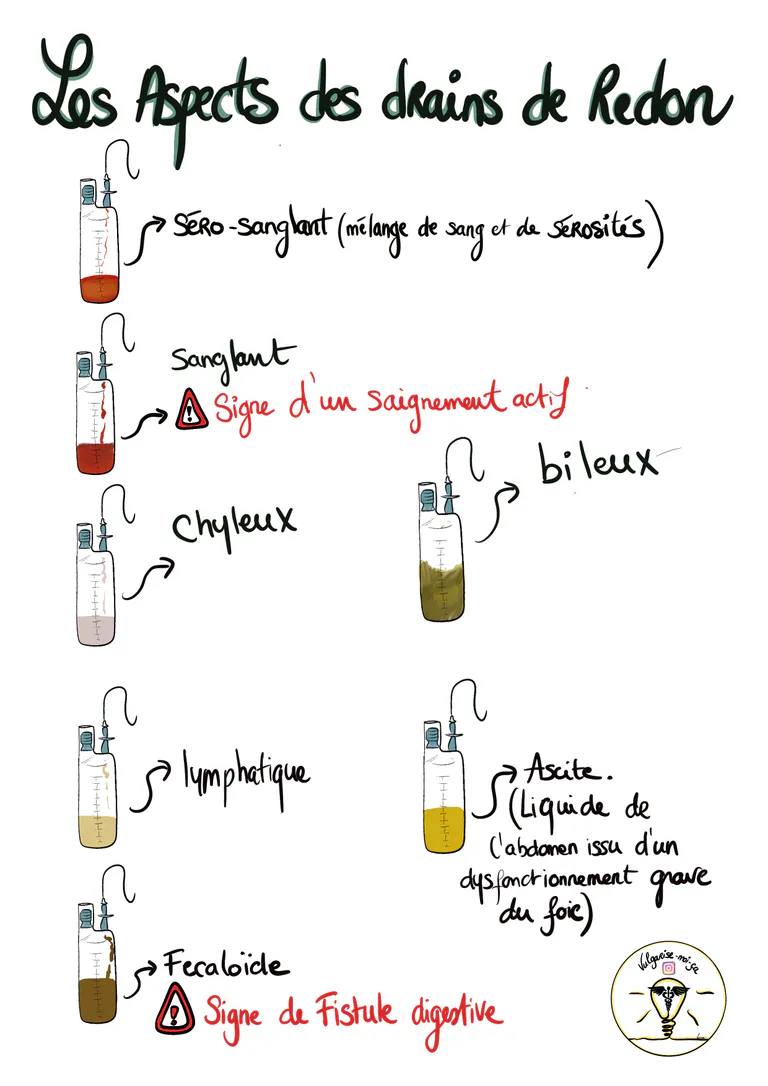 Les Aspects des drains de Redon
Séro-sanglant (mélange de sang et de sérosités)
Sanglant
Signe d'un saignement actif
bileux
Chyleux
lymphatique
Ascite.
(Liquide de
l'abdomen issu d'un
dysfonctionnement grave
du foie)
Fecaloïde
Signe de Fistule digestive
Vulgarise-moi-ça